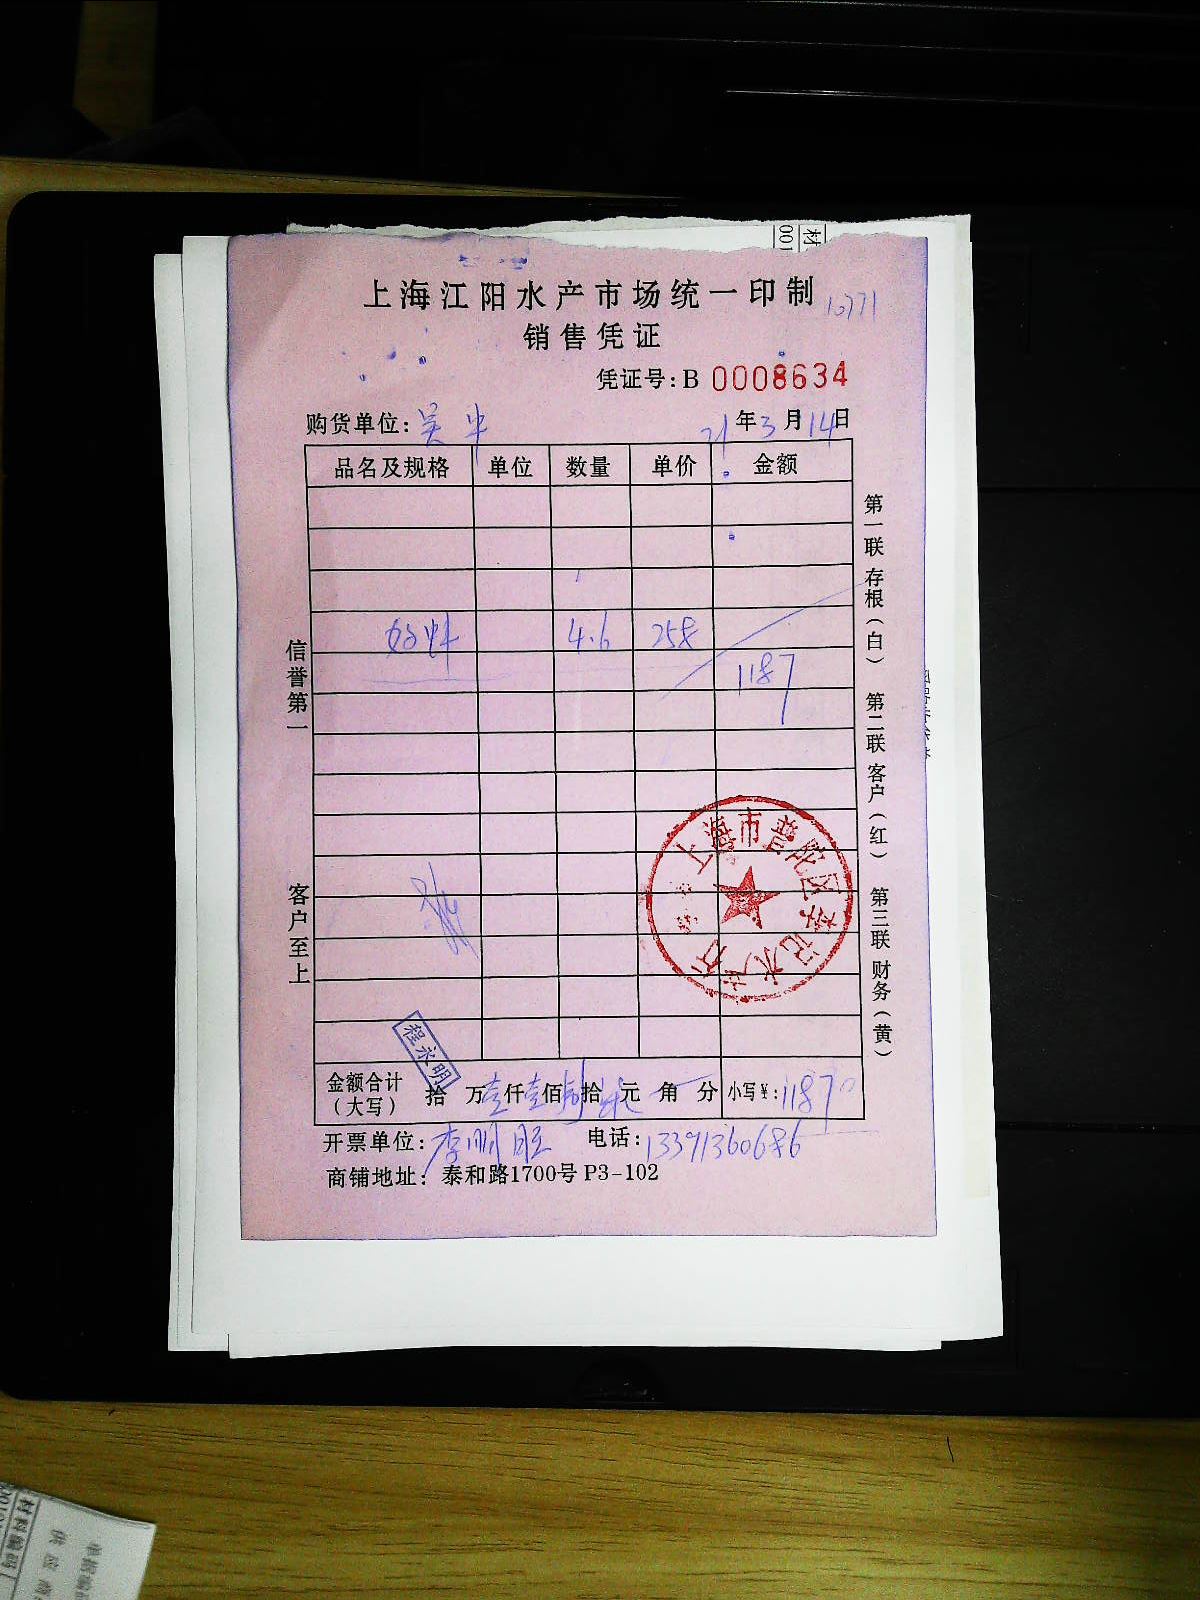 上海江阳水产市场统一印制
10771
销售凭证
凭证号:B 0008634
购货单位:吴中 21年3月14日
品名及规格 单位 数量 单价 金额
4.6 258
1187
信誉第一
客户至上
第一联 存根(白) 第二联 客户(红) 第三联 财务(黄)
上海市普陀区李记水产行
程永明
金额合计(大写) 拾 万壹仟壹佰捌拾柒元 角 分 小写¥:1187
开票单位:李顺旺 电话:13391360686
商铺地址:泰和路1700号 P3-102
材
001
材料编码